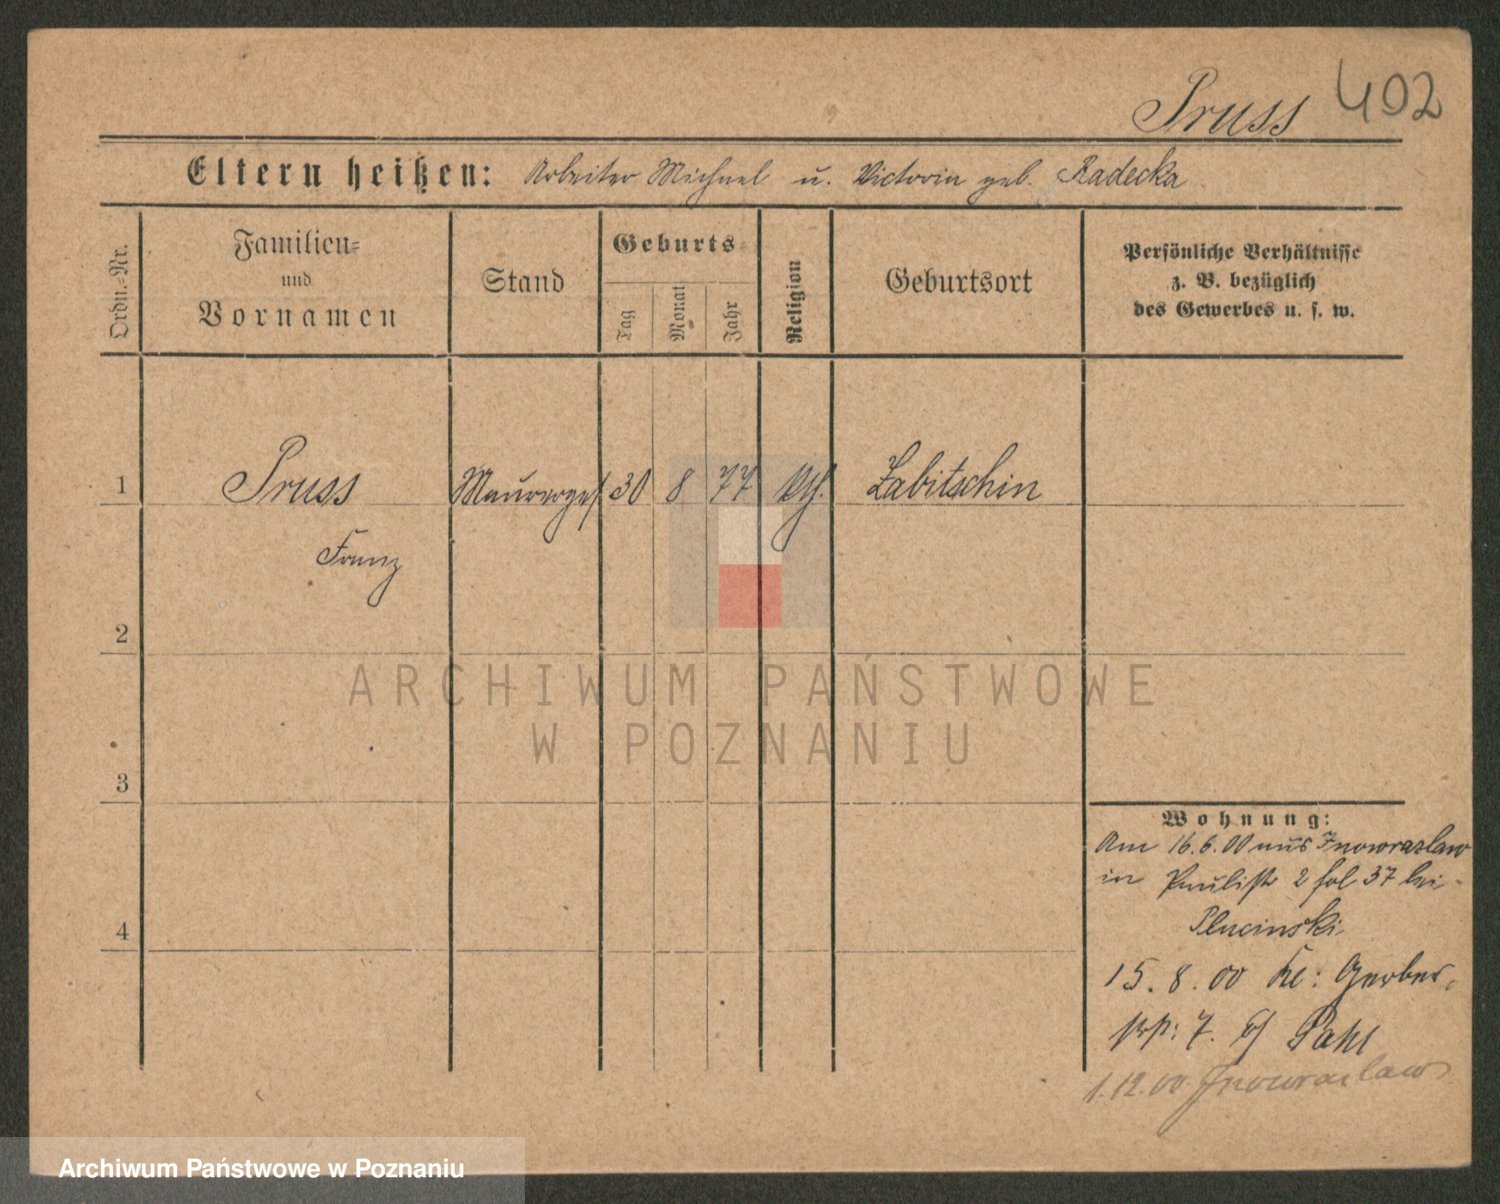 Pruss 402
Eltern heißen: Arbeiter Michael u. Victoria geb. Radecka
Ordn.-Nr.
Familien-
und
Vornamen
Stand
Geburts-
Tag
Monat
Jahr
Religion
Geburtsort
Persönliche Verhältnisse
z. B. bezüglich
des Gewerbes u. s. w.
1 Pruss Maurerges. 30 8 77 kth. Labitschin
Franz
2
3
4
ARCHIWUM PAŃSTWOWE
W POZNANIU
Wohnung:
Am 16.6.00 aus Inowrazlaw
in Paulistr 2 bei
Plucinski
15.8.00 Kl: Gerber
str: 7. b/ Pahl
1.12.00 Inowrazlaw
Archiwum Państwowe w Poznaniu